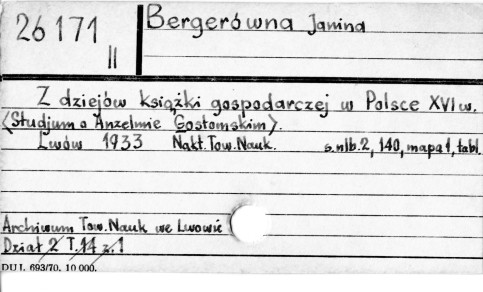 26171
II
Bergerówna Janina
Z dziejów książki gospodarczej w Polsce XVI w.
(Studjum o Anzelmie Gostomskim).
Lwów 1933 Nakł. Tow. Nauk. s. nlb. 2, 140, mapa 1, tabl.
Archiwum Tow. Nauk we Lwowie
Dział 2 T. 14 z. 1
DUJ. 693/70. 10 000.